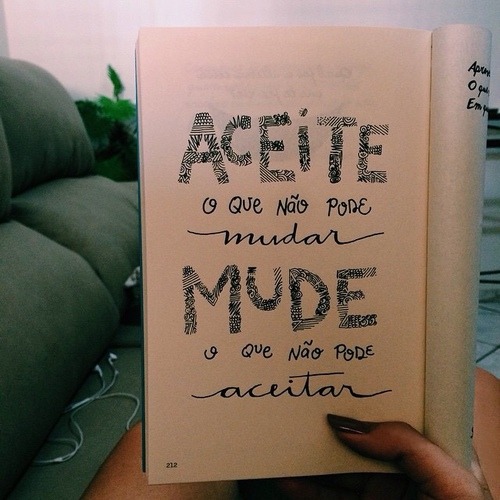 ACEiTE
O QUE NÃO PODE
mudar
MUDE
O QUE NÃO PODE
aceitar
212
O
Em